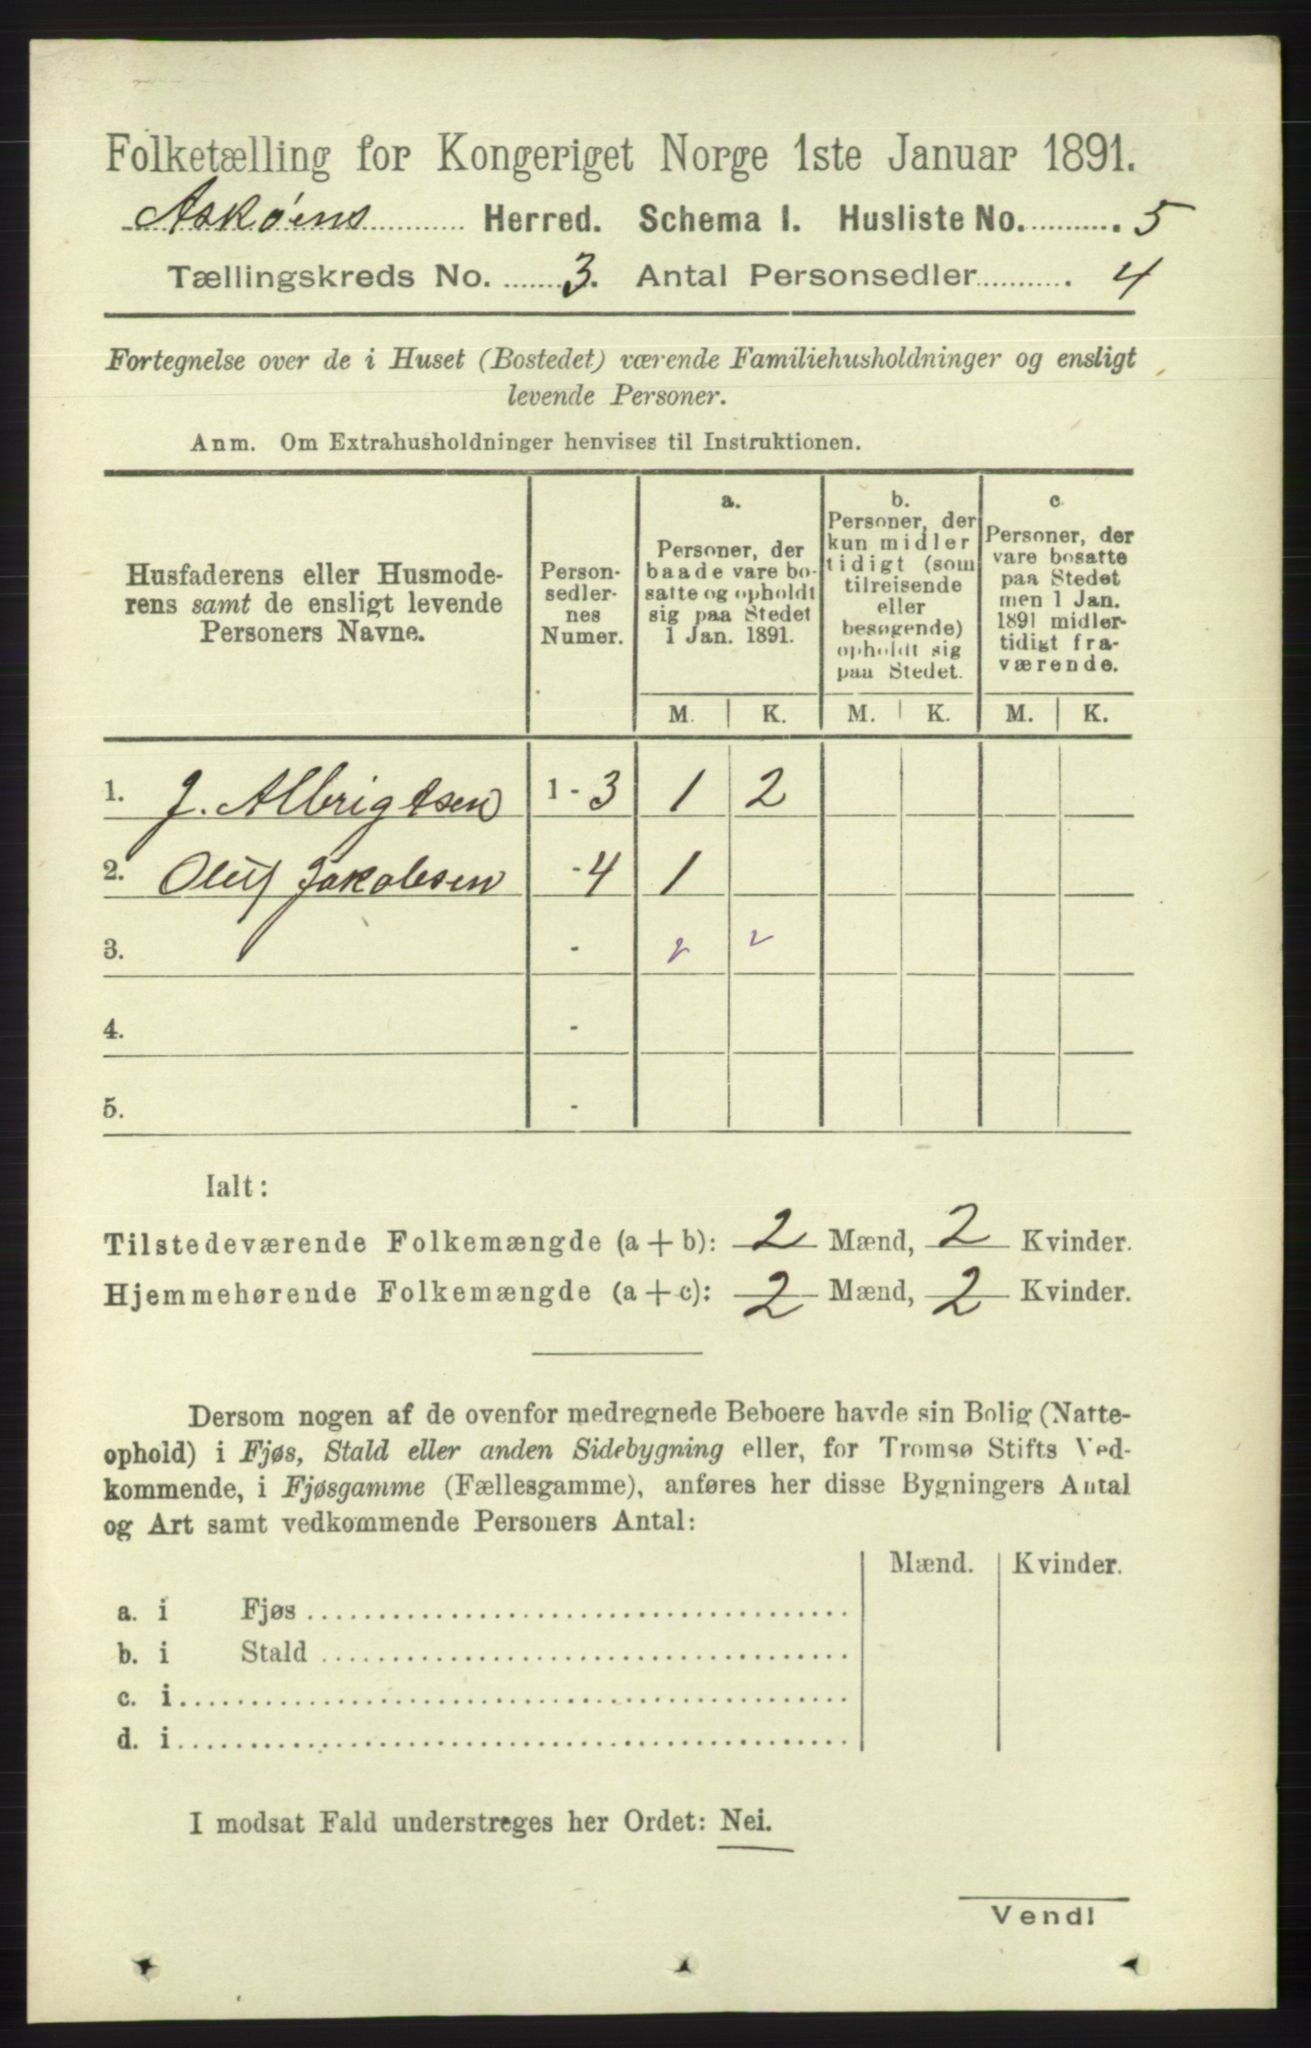 Folketælling for Kongeriget Norge 1ste Januar 1891.
Askøens Herred. Schema I. Husliste No. 5
Tællingskreds No. 3. Antal Personsedler 4
Fortegnelse over de i Huset (Bostedet) værende Familiehusholdninger og ensligt
levende Personer.
Anm. Om Extrahusholdninger henvises til Instruktionen.
Husfaderens eller Husmode-
rens samt de ensligt levende
Personers Navne.
Person-
sedler-
nes
Numer.
a.
Personer, der
baade vare bo-
satte og opholdt
sig paa Stedet
1 Jan. 1891.
b.
Personer, der
kun midler
tidigt (som
tilreisende
eller
besøgende)
opholdt sig
paa Stedet.
c
Personer, der
vare bosatte
paa Stedet
men 1 Jan.
1891 midler-
tidigt fra-
værende.
M. K. M. K. M. K.
1. J. Albrigtsen 1 - 3 1 2
2. Oluf Jakobsen - 4 1
3. - 2 2
4. -
5. -
Ialt:
Tilstedeværende Folkemængde (a + b): 2 Mænd, 2 Kvinder.
Hjemmehørende Folkemængde (a + c): 2 Mænd, 2 Kvinder.
Dersom nogen af de ovenfor medregnede Beboere havde sin Bolig (Natte-
ophold) i Fjøs, Stald eller anden Sidebygning eller, for Tromsø Stifts Ved-
kommende, i Fjøsgamme (Fællesgamme), anføres her disse Bygningers Antal
og Art samt vedkommende Personers Antal:
Mænd. Kvinder.
a. i Fjøs
b. i Stald
c. i
d. i
I modsat Fald understreges her Ordet: Nei.
Vend!